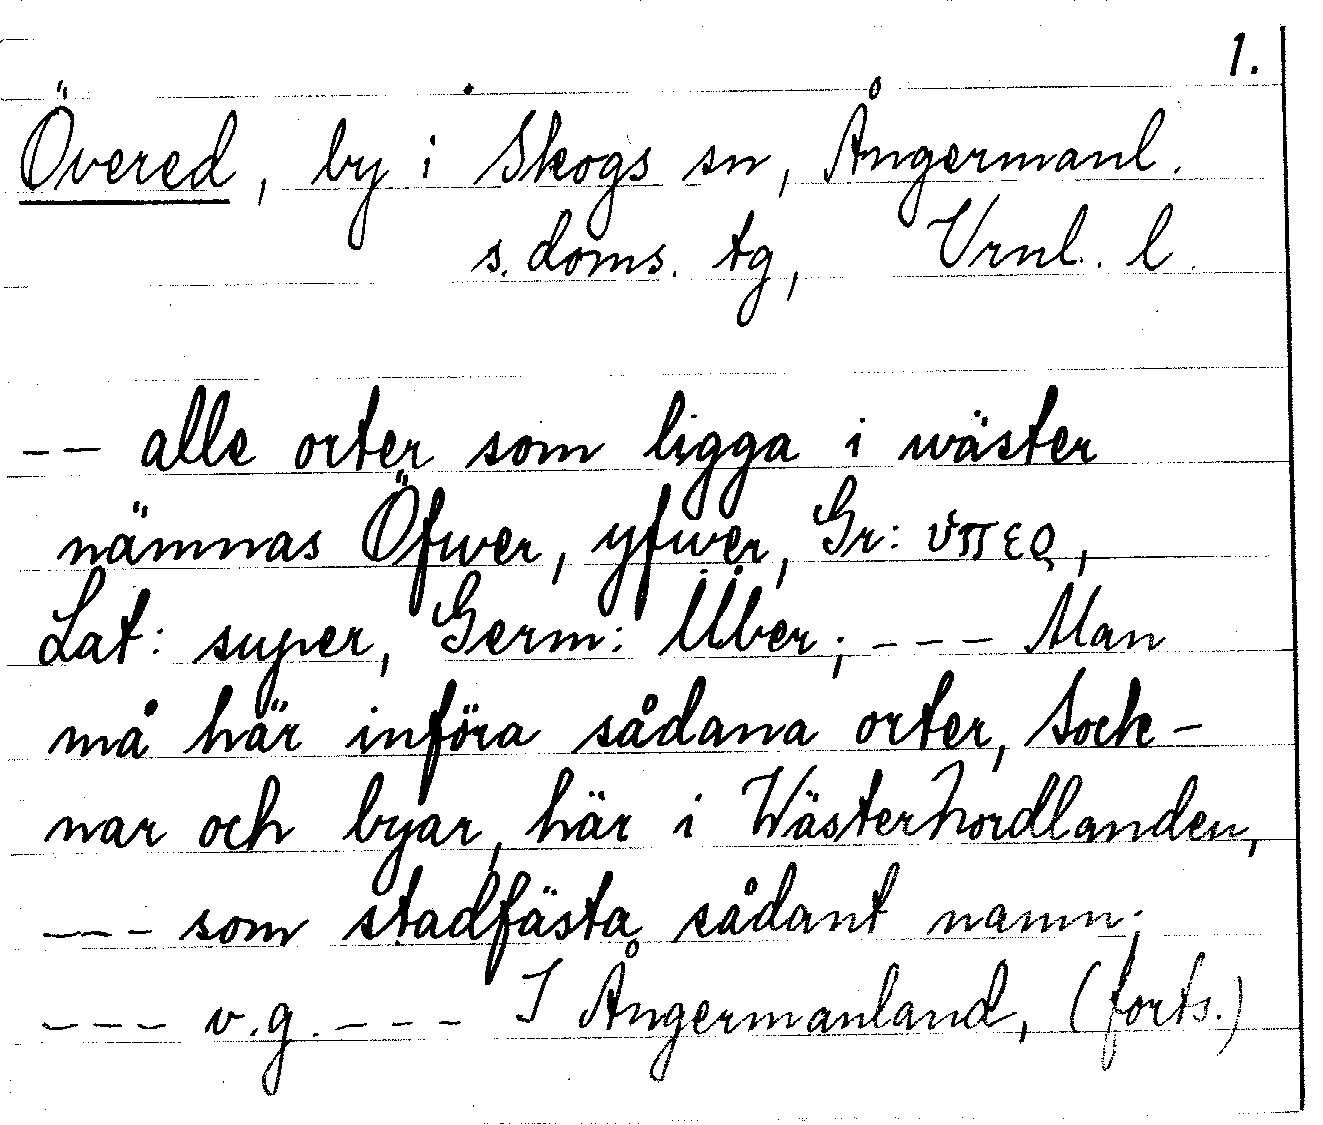 1.
Övered, by i Skogs sn, Ångermanl.
s. doms. tg, Vrnl. l.
-- alle orter som ligga i wäster
nämnas Öfwer, yfwer, Gr: ὑπερ,
Lat: super, Germ: Über; --- Man
må här införa sådana orter, Sock-
nar och byar, här i Wästernordlanden,
--- som stadfästa sådant namn;
--- v.g. --- I Ångermanland, (forts.)